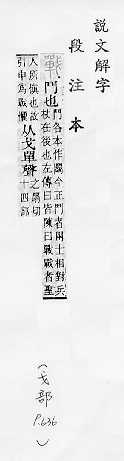 說文解字
段注本
戰
鬥也
鬥各本作鬭今正鬥者兩士相對兵
杖在後也左傳曰皆陳曰戰戰者聖
人所愼也故
引申爲戰懼
从戈單聲
之扇切
十四部
(戈部
P.636
)